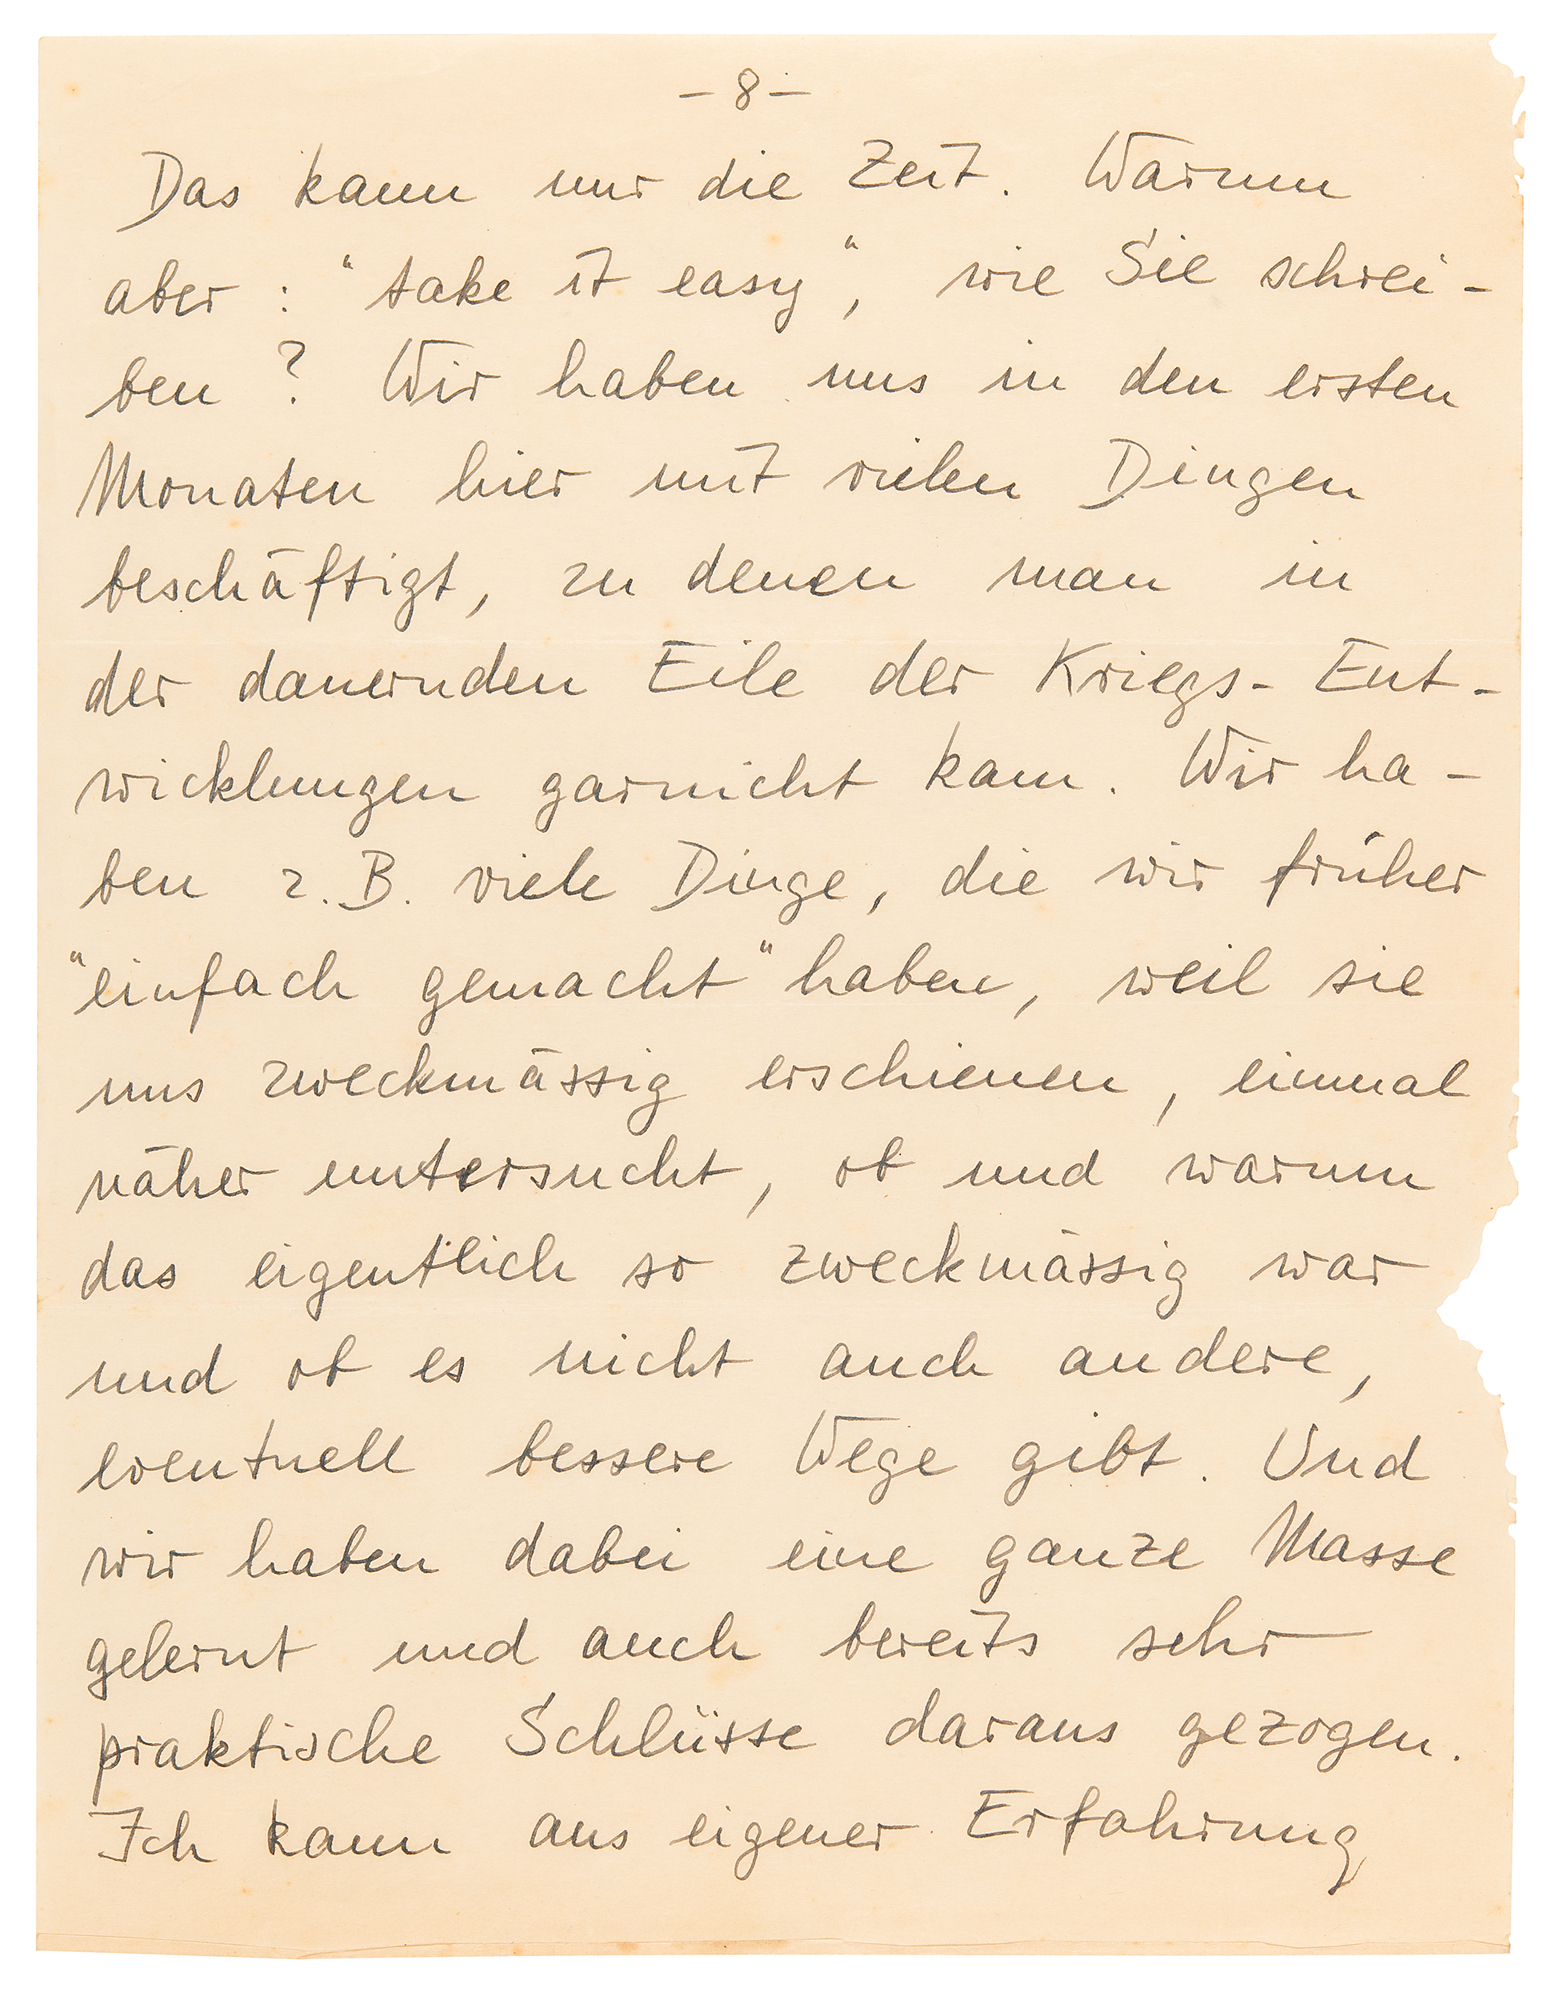 - 8 -
Das kann nur die Zeit. Warum
aber : "take it easy", wie Sie schrei-
ben ? Wir haben uns in den ersten
Monaten hier mit vielen Dingen
beschäftigt, zu denen man in
der dauernden Eile der Kriegs- Ent-
wicklungen garnicht kam. Wir ha-
ben z.B. viele Dinge, die wir früher
"einfach gemacht" haben, weil sie
uns zweckmässig erschienen, einmal
näher untersucht, ob und warum
das eigentlich so zweckmässig war
und ob es nicht auch andere,
eventuell bessere Wege gibt. Und
wir haben dabei eine ganze Masse
gelernt und auch bereits sehr
praktische Schlüsse daraus gezogen.
Ich kann aus eigener Erfahrung